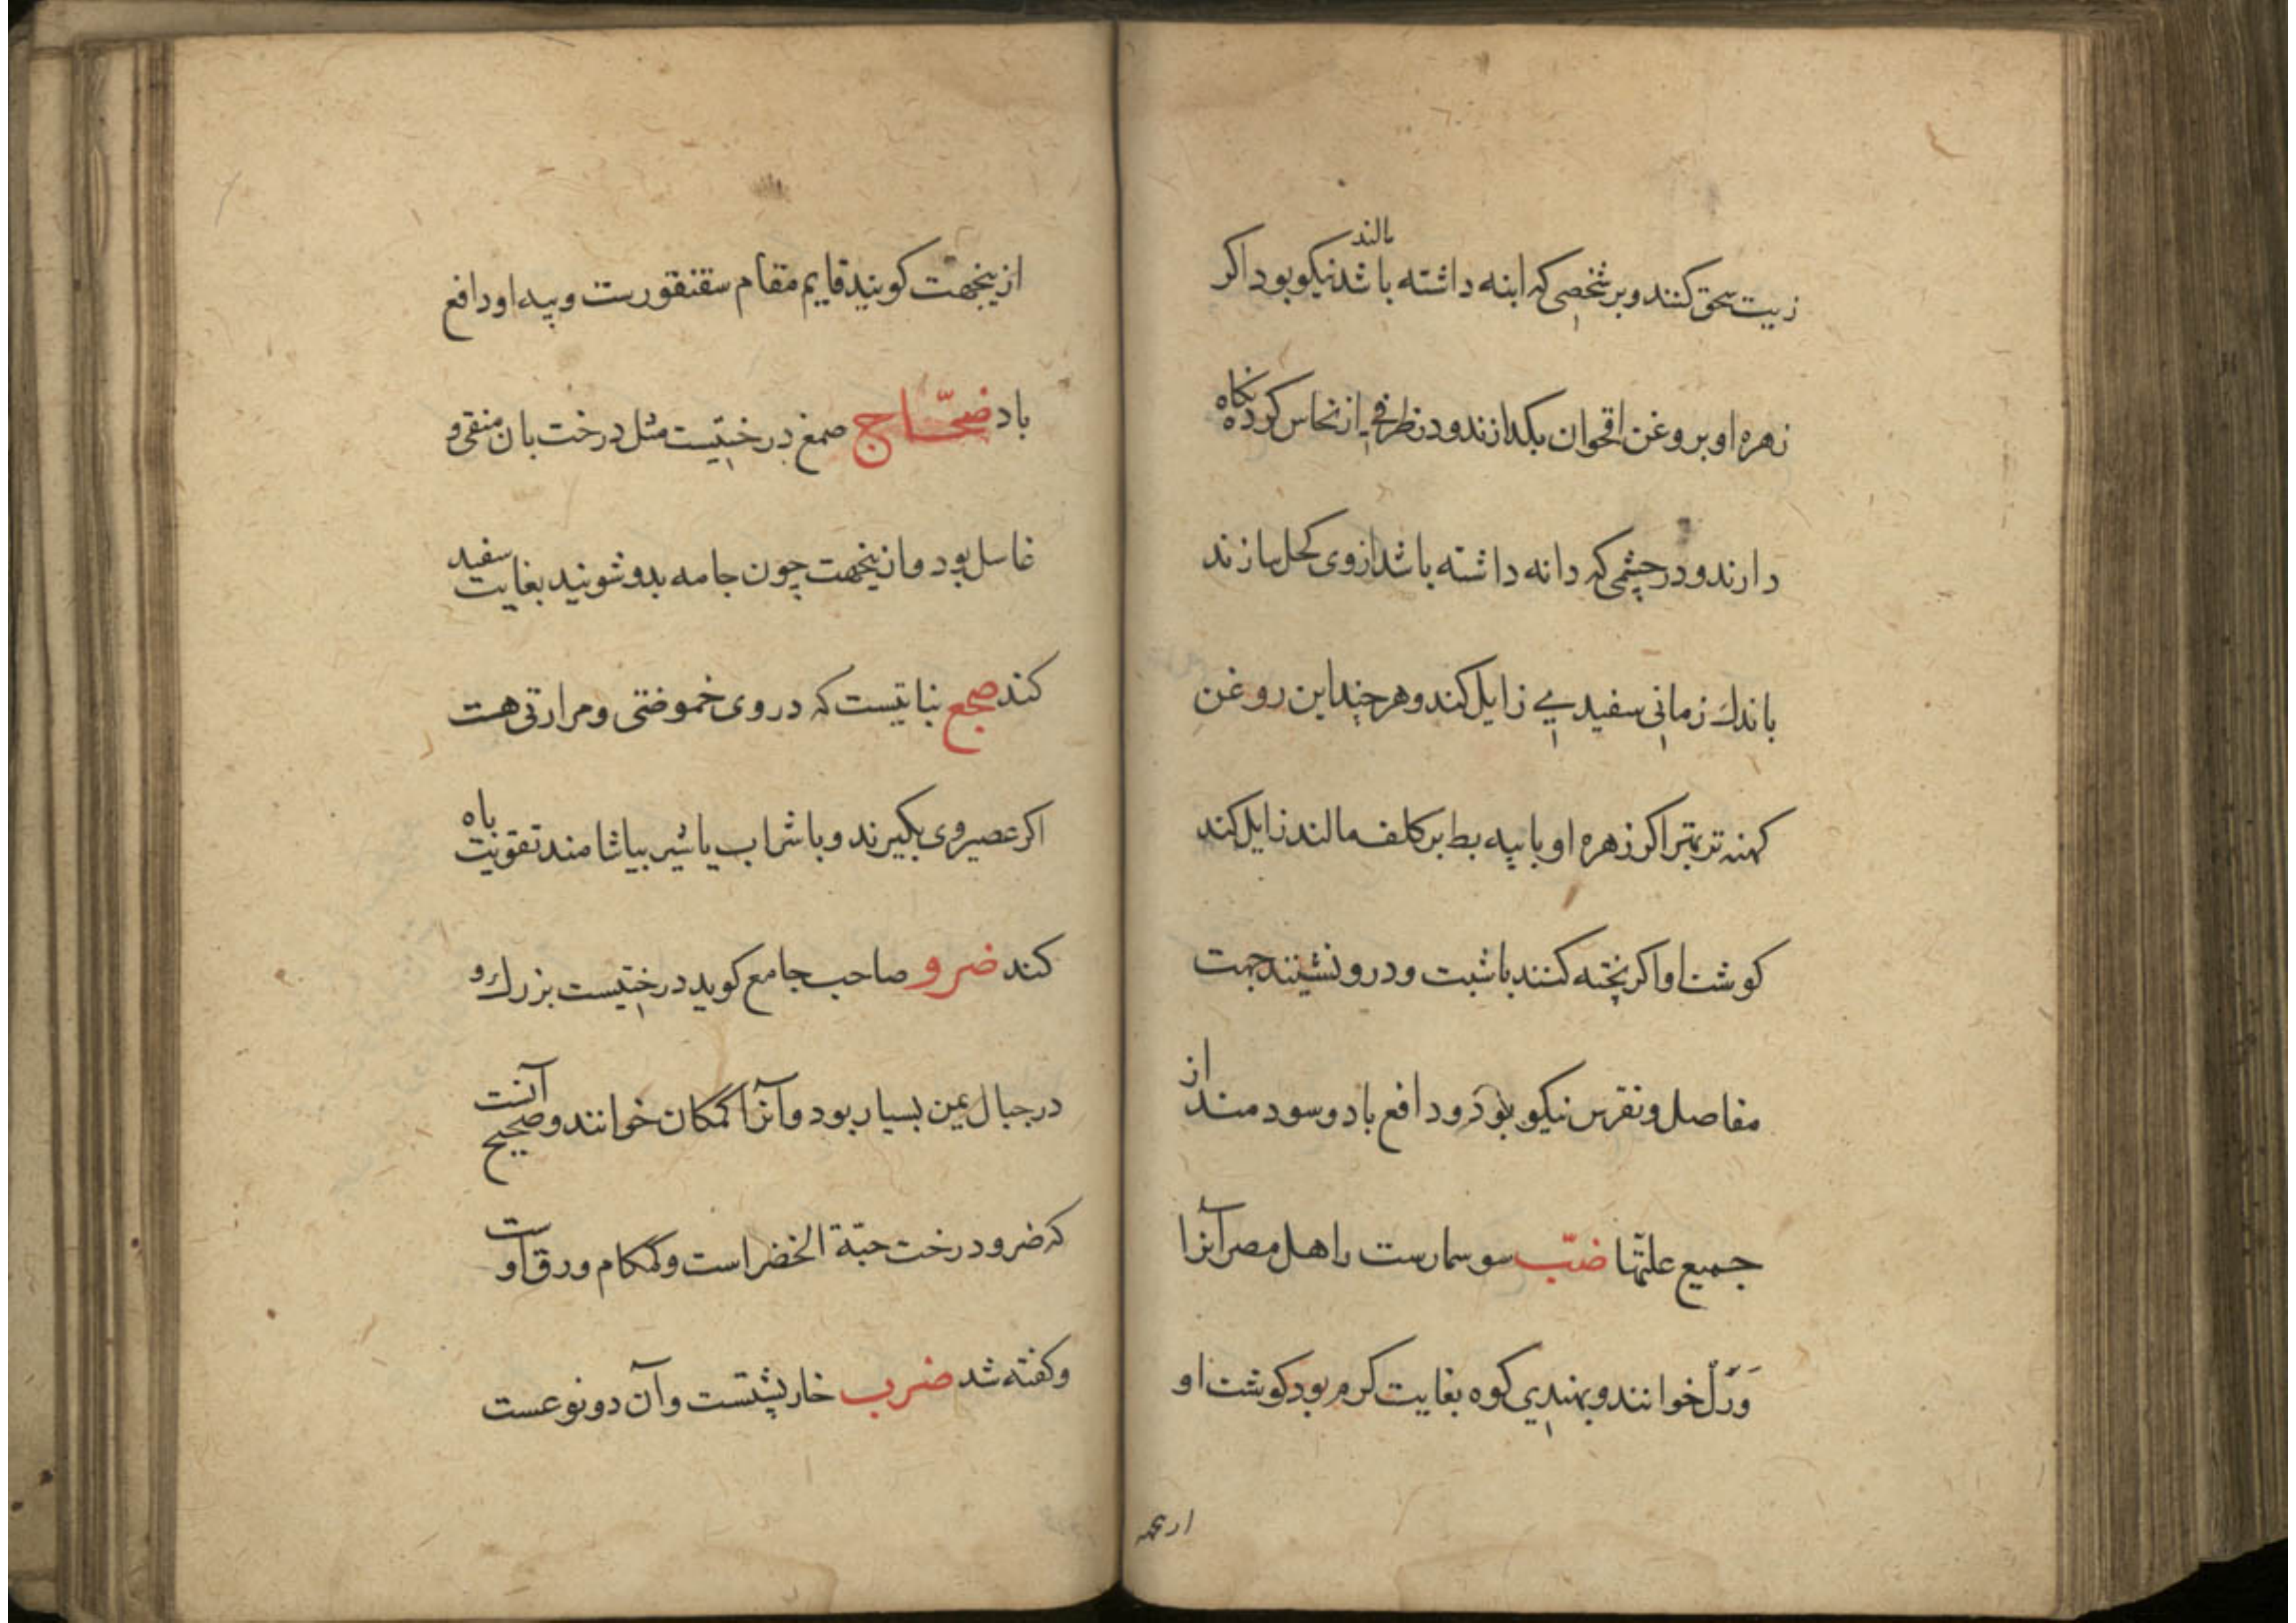 زیت سحق کنند و بر شخصی که ابنه داشته باشد مالند نیکو بود اکر
زهره او بروغن اقحوان بکدازند و در ظرفی از نحاس کرده نکاه
دارند و در چشمی که دانه داشته باشد ازوی کحل سازند
باندك زمانی سفیدیی زایل کند و هر چند این روغن
کهنه تر بهتر اکر زهره او با پیه بط بر کلف مالند زایل کند
کوشت او اکر پخته کنند با شبت و درو نشینند جهت
مفاصل و نقرس نیکو بود و دافع باد و سودمند از
جمیع علتها ضبّ سوسمارست و اهل مصر آنرا
وَرَل خوانند و بهندی کوه بغایت کرم بود کوشت او
ازینجهت
ازینجهت کویند قایم مقام سقنقورست و پیه او دافع
باد ضجّاج صمغ درختیست مثل درخت بان منقی و
غاسل بود و ازینجهت چون جامه بدو شویند بغایت سفید
کند ضجع نباتیست که در وی خموضتی و مرارتی هست
اکر عصیر وی بکیرند و با شراب یا شیر بیاشامند تقویت باه
کند ضرو صاحب جامع کوید درختیست بزرك و
در جبال یمن بسیار بود و آنرا کمکان خوانند و صحیح آنست
که ضرو درخت حبّة الخضراست و کمکام ورق اوست
و کفته شد ضرب خارپشتست و آن دو نوعست